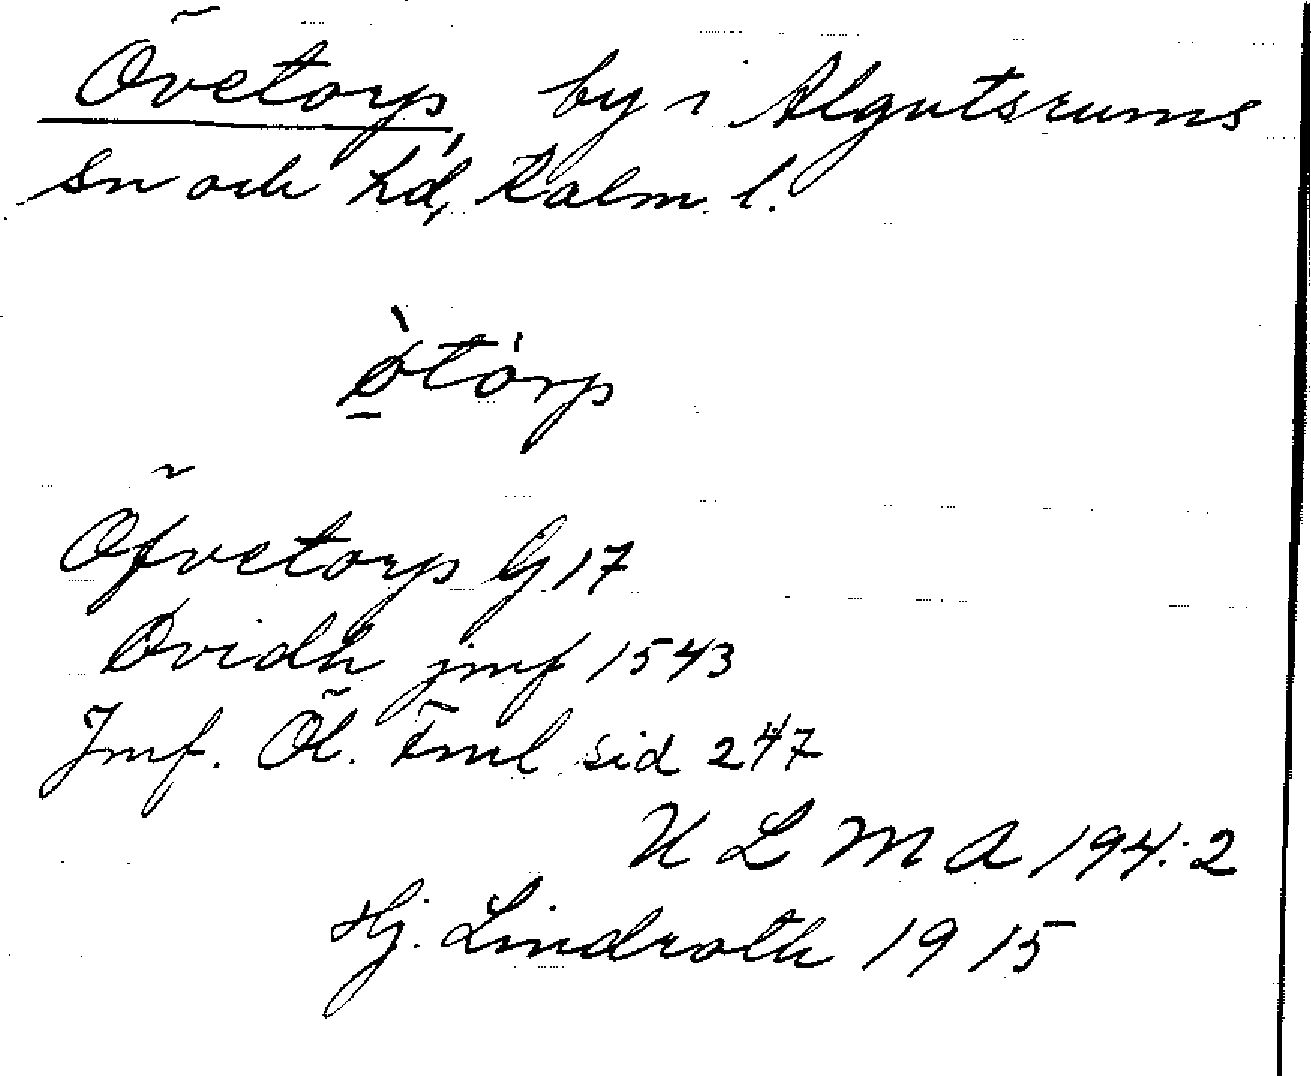 Övetorp, by i Algutsrums
sn och hd, Kalm. l.
ø̀tórp
Öfvetorp G 17
Øvidh jmf 1543
Jmf. Öl. Fml sid 247
U L M A 194:2
Hj. Lindroth 1915